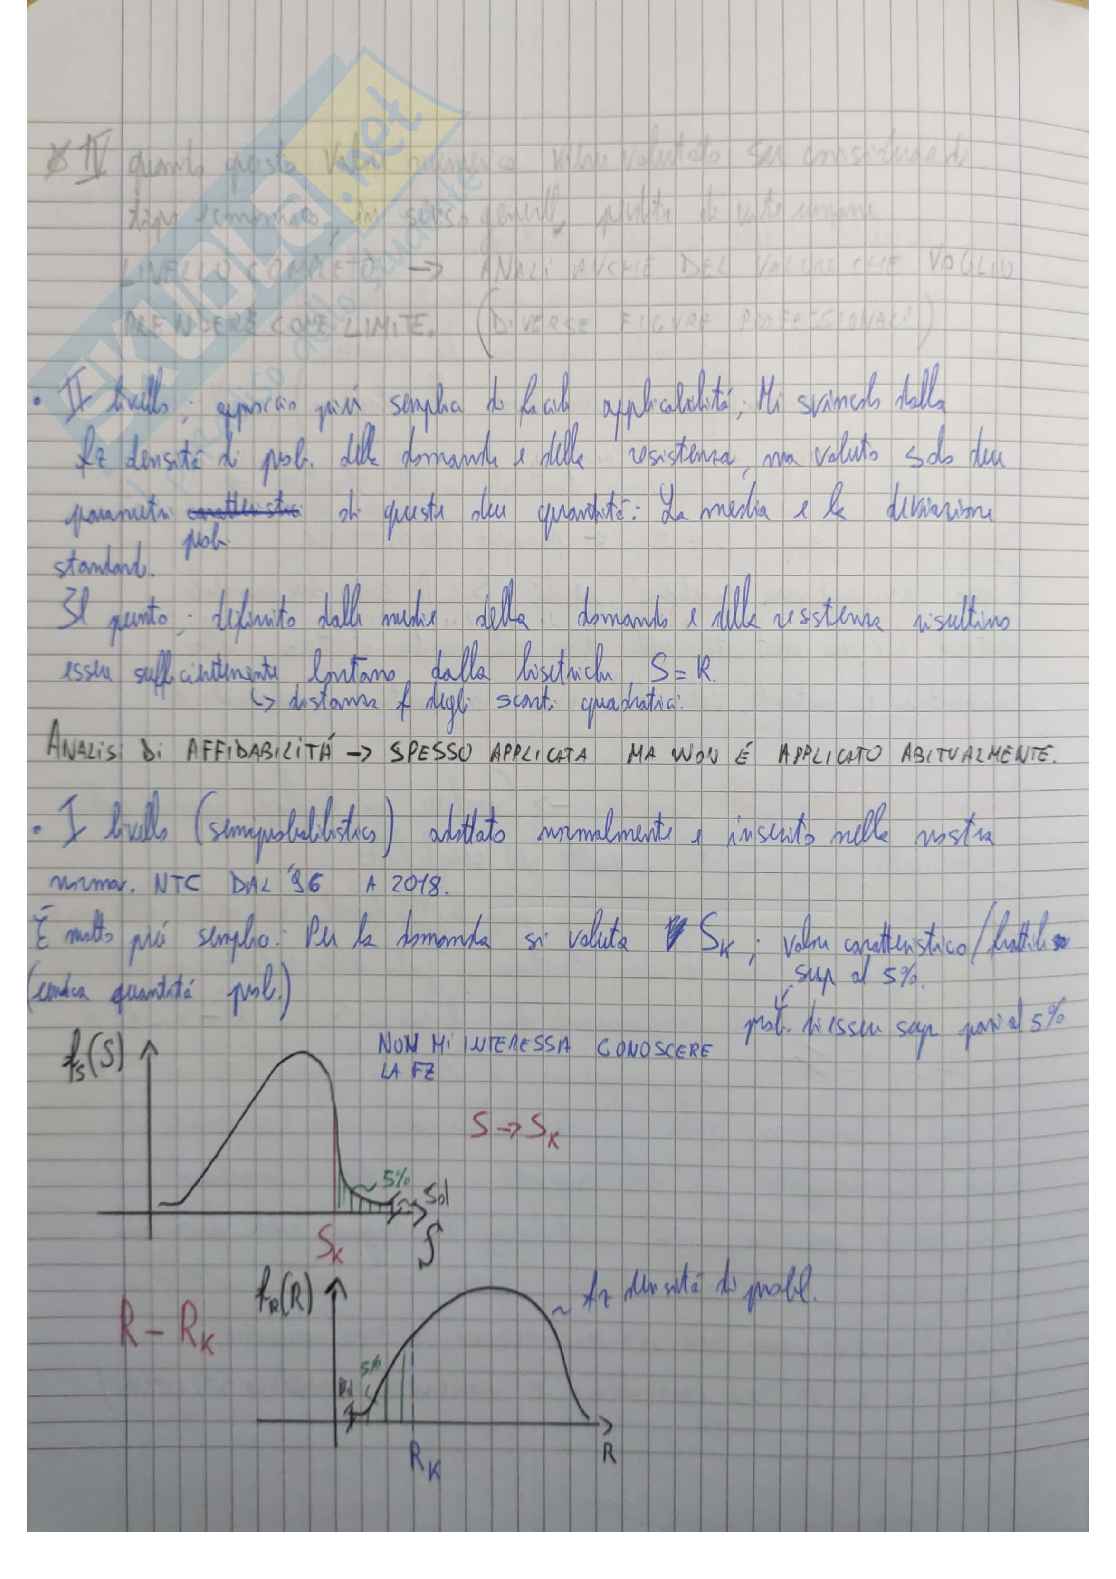 IV quando questo valore valutato su considerazioni
tipo economico, in senso generale, perdita di vite umane
LIVELLO COMPLETO → ANALI ANCHE DEL VALORE CHE VOGLIO
PRENDERE COME LIMITE. (DIVERSE FIGURE PROFESSIONALI)
SKUOLA.net
• II livello; approccio più semplice di facile applicabilità; Mi svincolo dalla
fz densità di prob. della domanda e della resistenza, ma valuto solo due
parametri prob. di queste due quantità: La media e la deviazione
standard.
Il punto definito dalle medie della domanda e della resistenza risultino
essere sufficientemente lontano dalla bisettrice S=R.
↳ distanza f degli scarti quadratici.
ANALISI DI AFFIDABILITÁ → SPESSO APPLICATA MA NON É APPLICATO ABITUALMENTE.
• I livello (semiprobabilistico) adottato normalmente e inserito nella nostra
normat. NTC DAL '96 A 2018.
È molto più semplice. Per la domanda si valuta SK; valore caratteristico/frattile
sup al 5%.
(unica quantità prob.)
prob. di esser sup pari al 5%
fS(S)
NON MI INTERESSA CONOSCERE
LA FZ
S → SK
5%
Sd
SK
S
fR(R)
fz densità di probl.
R – RK
5%
Rd
R
RK